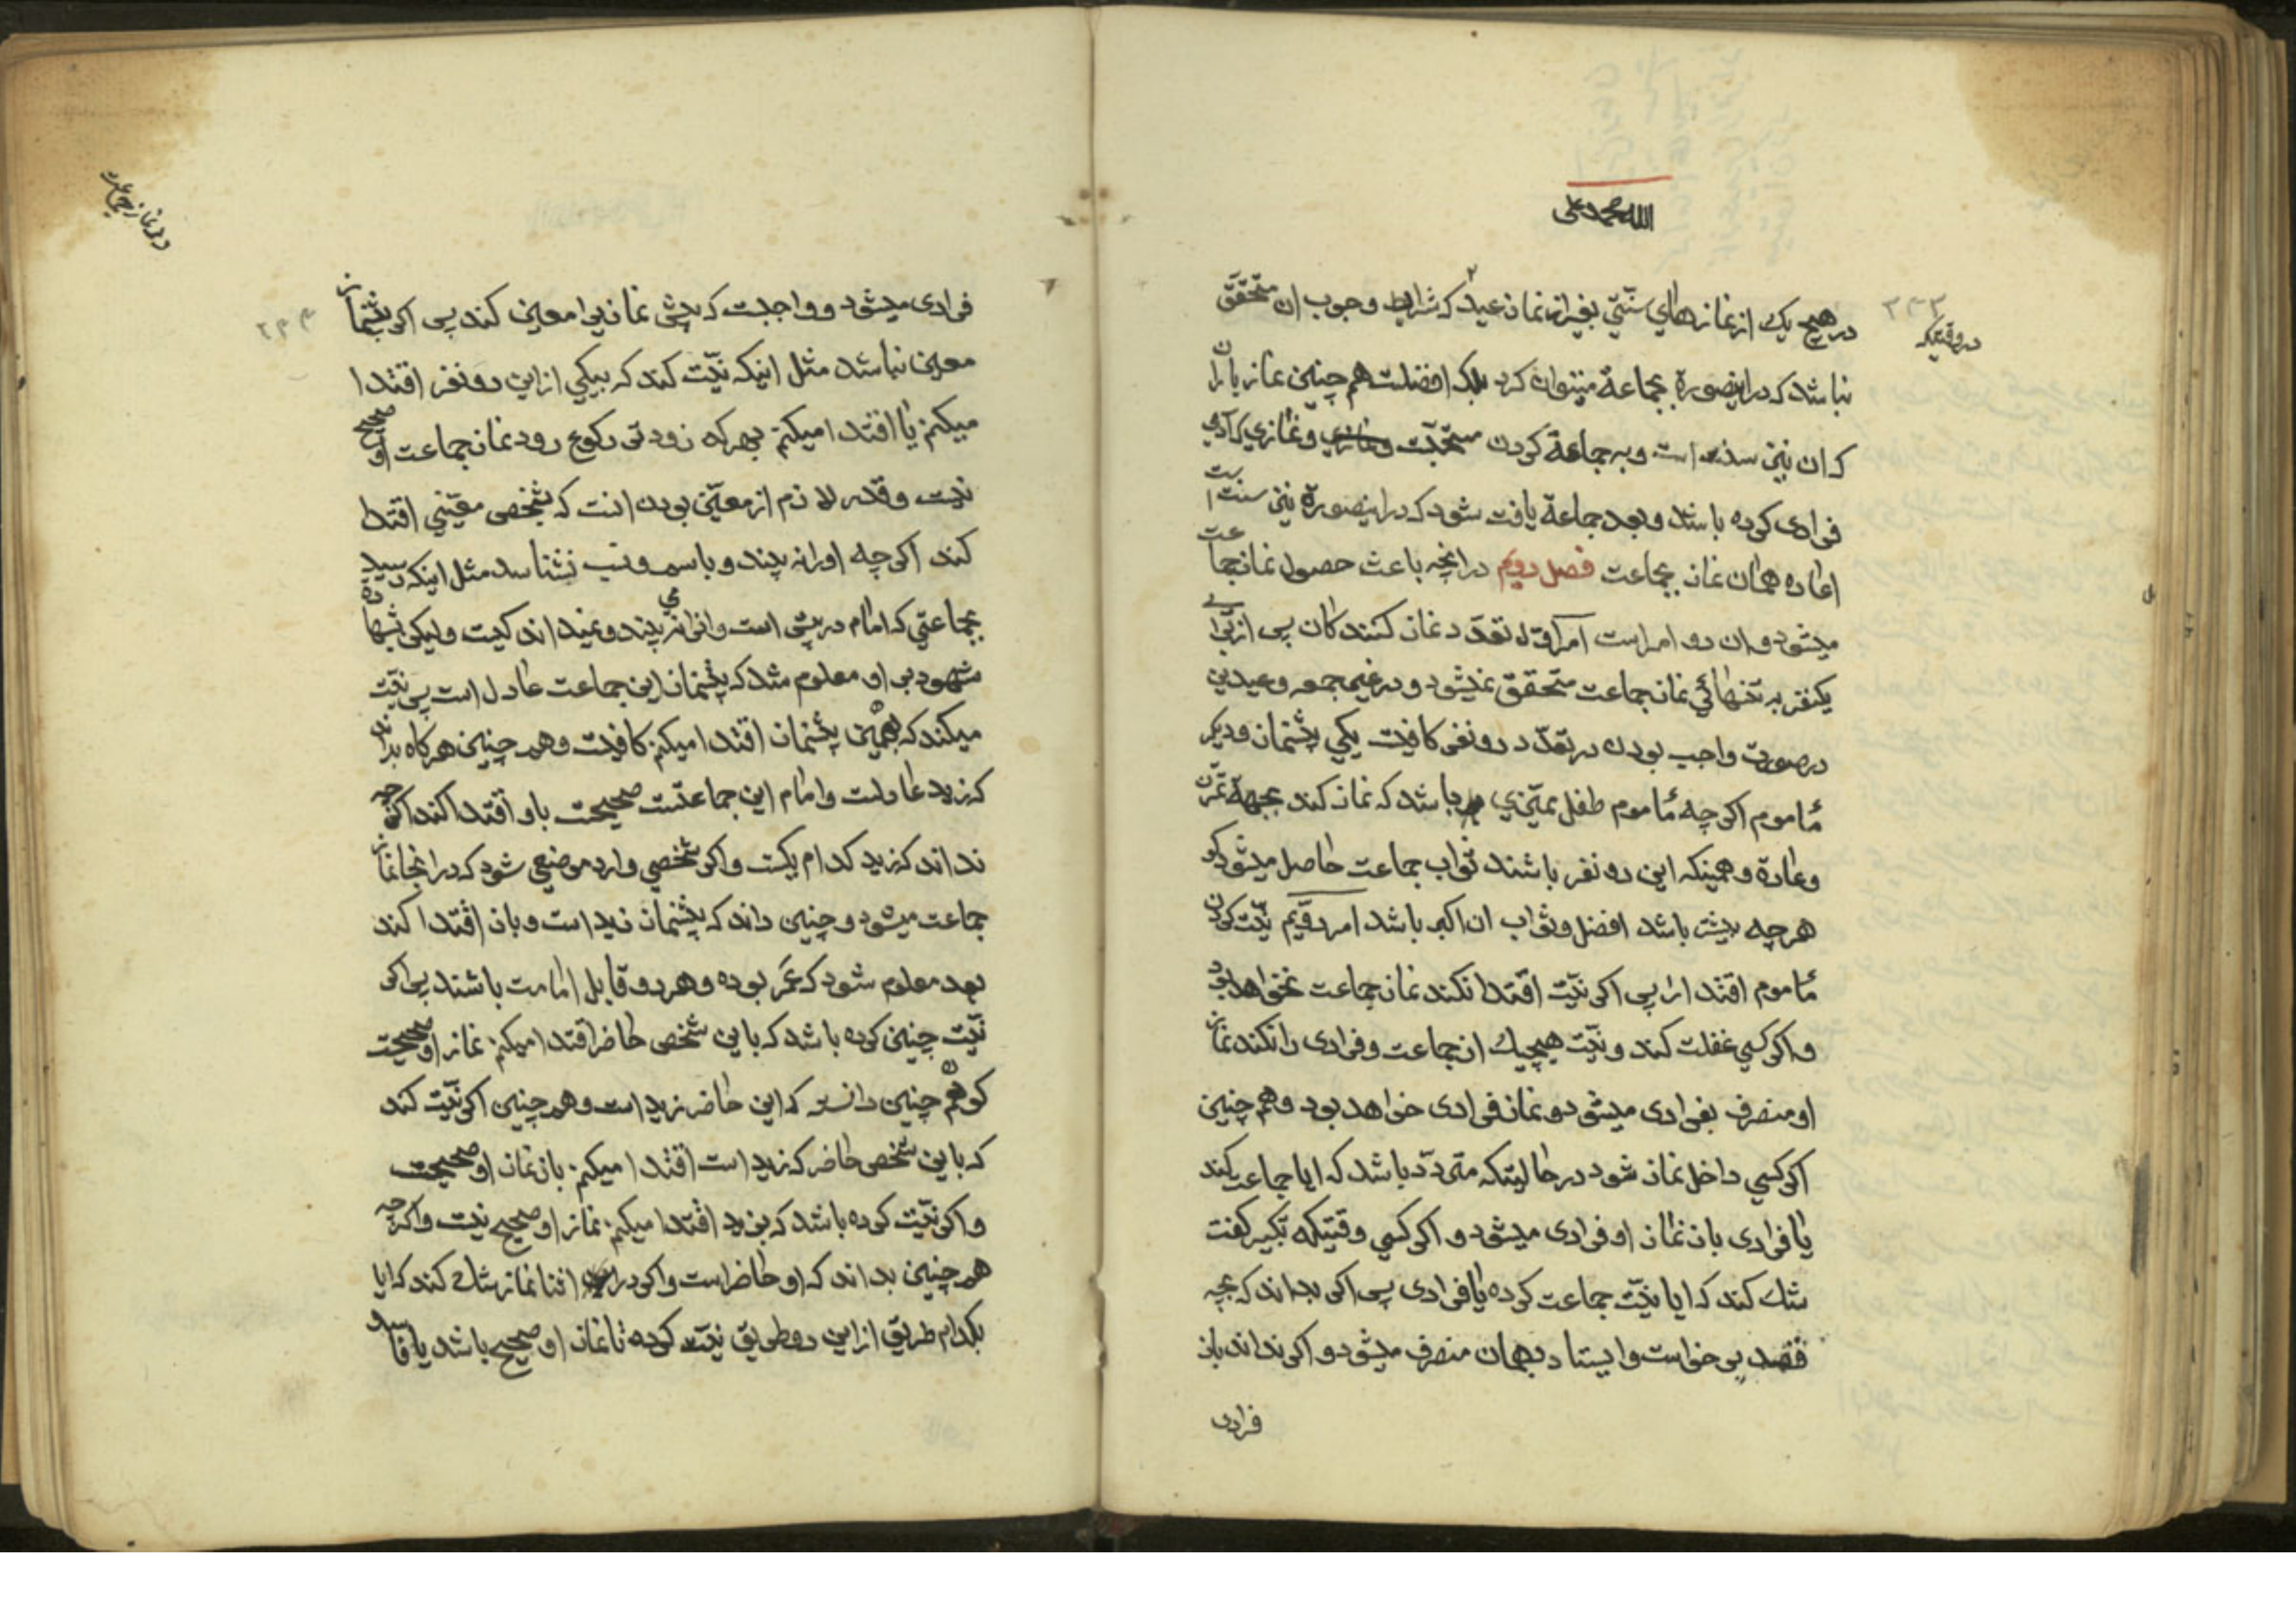 الله محمد علی
۲۴۳
در وقتیکه
در هیچ یک از نمازهای سنّتی بغیر از نماز عید که شرایط وجوب ان متحقق
نباشد که در اینصورة بجماعة میتوان کرد بلکه افضلست هم چنین نماز باران
که ان نیز سنت است و به جماعة کردن مستحبّست و نمازی که آدمی
فرادی کرده باشد و بعد جماعة یافت شود که در اینصورة نیز سنت است
اعاده همان نماز بجماعت فصل دویم در انچه باعث حصول نماز جماعت
میشود و ان دو امر است امر اوّل تعدّد نماز کنندکان پس از برای
یکنفر به تنهائی نماز جماعت متحقق نمیشود و در غیر جمعه و عیدین
در صورت واجب بودن در تعدّد دو نفر کافیست یکی پیشنماز و دیکر
مأموم اکرچه مأموم طفل ممیّزی باشد که نماز کند بجهة تمرّن
وعادة و همینکه این دو نفر باشند ثواب جماعت حاصل میشود کو
هرچه بیشتر باشد افضل و ثواب ان اکبر باشد امر دوّیم نیّت کردن
مأموم اقتدا را پس اکر نیّت اقتدا نکند نماز جماعت نخواهد بود
و اکر کسی غفلت کند و نیّت هیچیک از جماعت و فرادی را نکند نماز
او منصرف بفرادی میشود و نماز فرادی خواهد بود و هم چنین
اکر کسی داخل نماز شود در حالیتکه متردّد باشد که ایا جماعت کند
یا فرادی بان نماز او فرادی میشود و اکر کسی وقتیکه تکبیر کفت
شک کند که ایا نیّت جماعت کرده یا فرادی پس اکر بداند که بچه
قصد بر خواست و ایستاد بهمان منصرف میشود و اکر نداند باز
فرادی
در نماز جماعت
۲۴۴
فرادی میشود و واجبست که پیش نماز را معین کند پس اکر پیشنماز
معین نباشد مثل اینکه نیّت کند که بیکی از این دو نفر اقتدا
میکنم یا اقتدا میکنم بهر که زودتر رکوع رود نماز جماعت او صحیح
نیست و قدر لازم از معیّن بودن انست که بشخص معیّنی اقتدا
کند اکرچه او را نه بیند و باسم و نسب نشناسد مثل اینکه رسید
بجماعتی که امام در پیش است و او را نمی بیند و نمیداند کیست ولیکن بشهادة
شهود بر او معلوم شد که پیشنماز این جماعت عادل است پس نیّت
میکند که بهمین پیشنماز اقتدا میکنم کافیست و هم چنین هر کاه بداند
که زید عادلست و امام این جماعتست صحیحست باو اقتدا کند اکرچه
نداند که زید کدام یکست و اکر شخصی وارد موضعی شود که در انجا نماز
جماعت میشود و چنین داند که پیشنماز زید است و بان اقتدا کند
بعد معلوم شود که عمر بوده و هر دو قابل امامت باشند پس اکر
نیّت چنین کرده باشد که باین شخص حاضر اقتدا میکنم نماز او صحیحست
کو هم چنین دانسته که این حاضر زید است و هم چنین اکر نیّت کند
که باین شخص حاضر که زید است اقتدا میکنم باز نماز او صحیحست
و اکر نیّت کرده باشد که بزید اقتدا میکنم نماز او صحیح نیست و اکرچه
هم چنین بداند که او حاضر است و اکر در اثنا نماز شک کند که ایا
بکدام طریق از این دو طریق نیّت کرده تا نماز او صحیح باشد یا فاسد